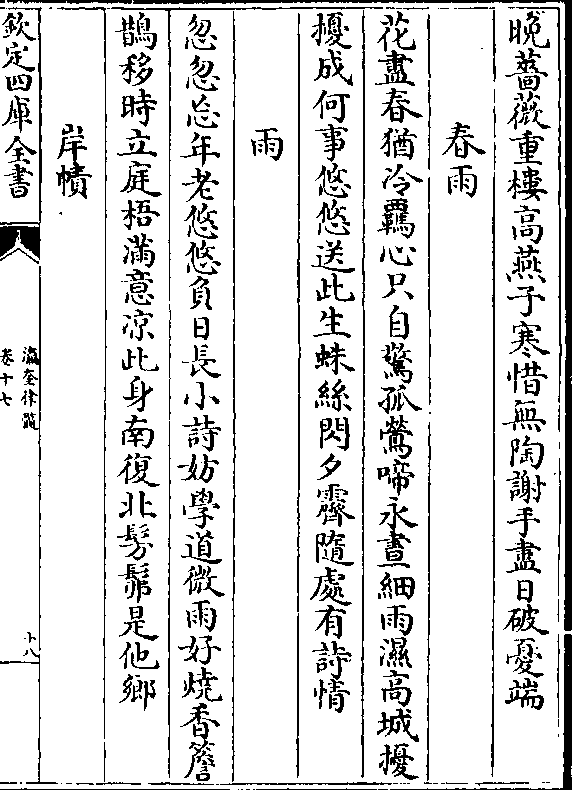 晚薔薇重樓高燕子寒惜無陶謝手盡日破憂端
春雨
花盡春猶冷羈心只自驚孤鶯啼永晝細雨濕高城擾
擾成何事悠悠送此生蛛絲閃夕霽隨處有詩情
雨
忽忽忘年老悠悠負日長小詩妨學道微雨好燒香簷
鵲移時立庭梧滿意凉此身南復北髣髴是他鄉
岸幘
欽定四庫全書
瀛奎律髓
卷十七
十八